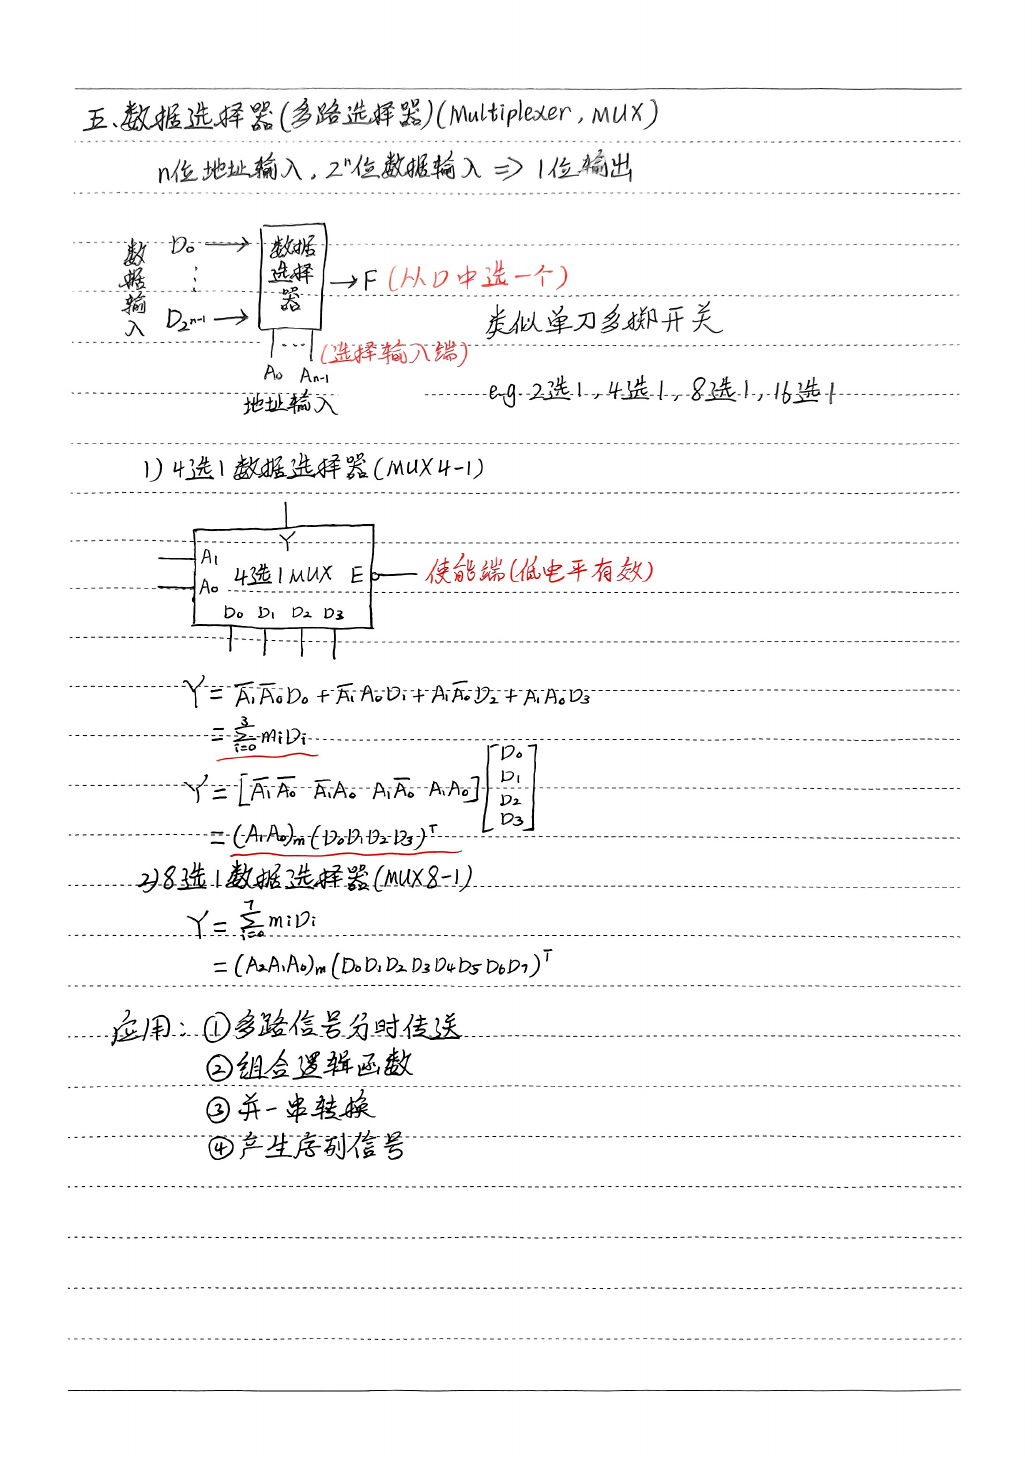 五、数据选择器(多路选择器)(Multiplexer, MUX)
n位地址输入, 2ⁿ位数据输入 => 1位输出
数据输入
D₀ → 数据选择器
⋮
→ F (从D中选一个)
D₂ⁿ₋₁ →
类似单刀多掷开关
... (选择输入端)
A₀ Aₙ₋₁
地址输入
e.g 2选1, 4选1, 8选1, 16选1
1) 4选1数据选择器(MUX4-1)
Y
A₁
4选1MUX E 使能端(低电平有效)
A₀
D₀ D₁ D₂ D₃
Y = A̅₁A̅₀D₀ + A̅₁A₀D₁ + A₁A̅₀D₂ + A₁A₀D₃
= ∑³ᵢ₌₀ mᵢDᵢ
Y = [A̅₁A̅₀ A̅₁A₀ A₁A̅₀ A₁A₀] [D₀ D₁ D₂ D₃]
= (A₁A₀)ₘ(D₀D₁D₂D₃)ᵀ
2) 8选1数据选择器(MUX8-1)
Y = ∑⁷ᵢ₌₀ mᵢDᵢ
= (A₂A₁A₀)ₘ(D₀D₁D₂D₃D₄D₅D₆D₇)ᵀ
应用: ①多路信号分时传送
②组合逻辑函数
③并-串转换
④产生序列信号